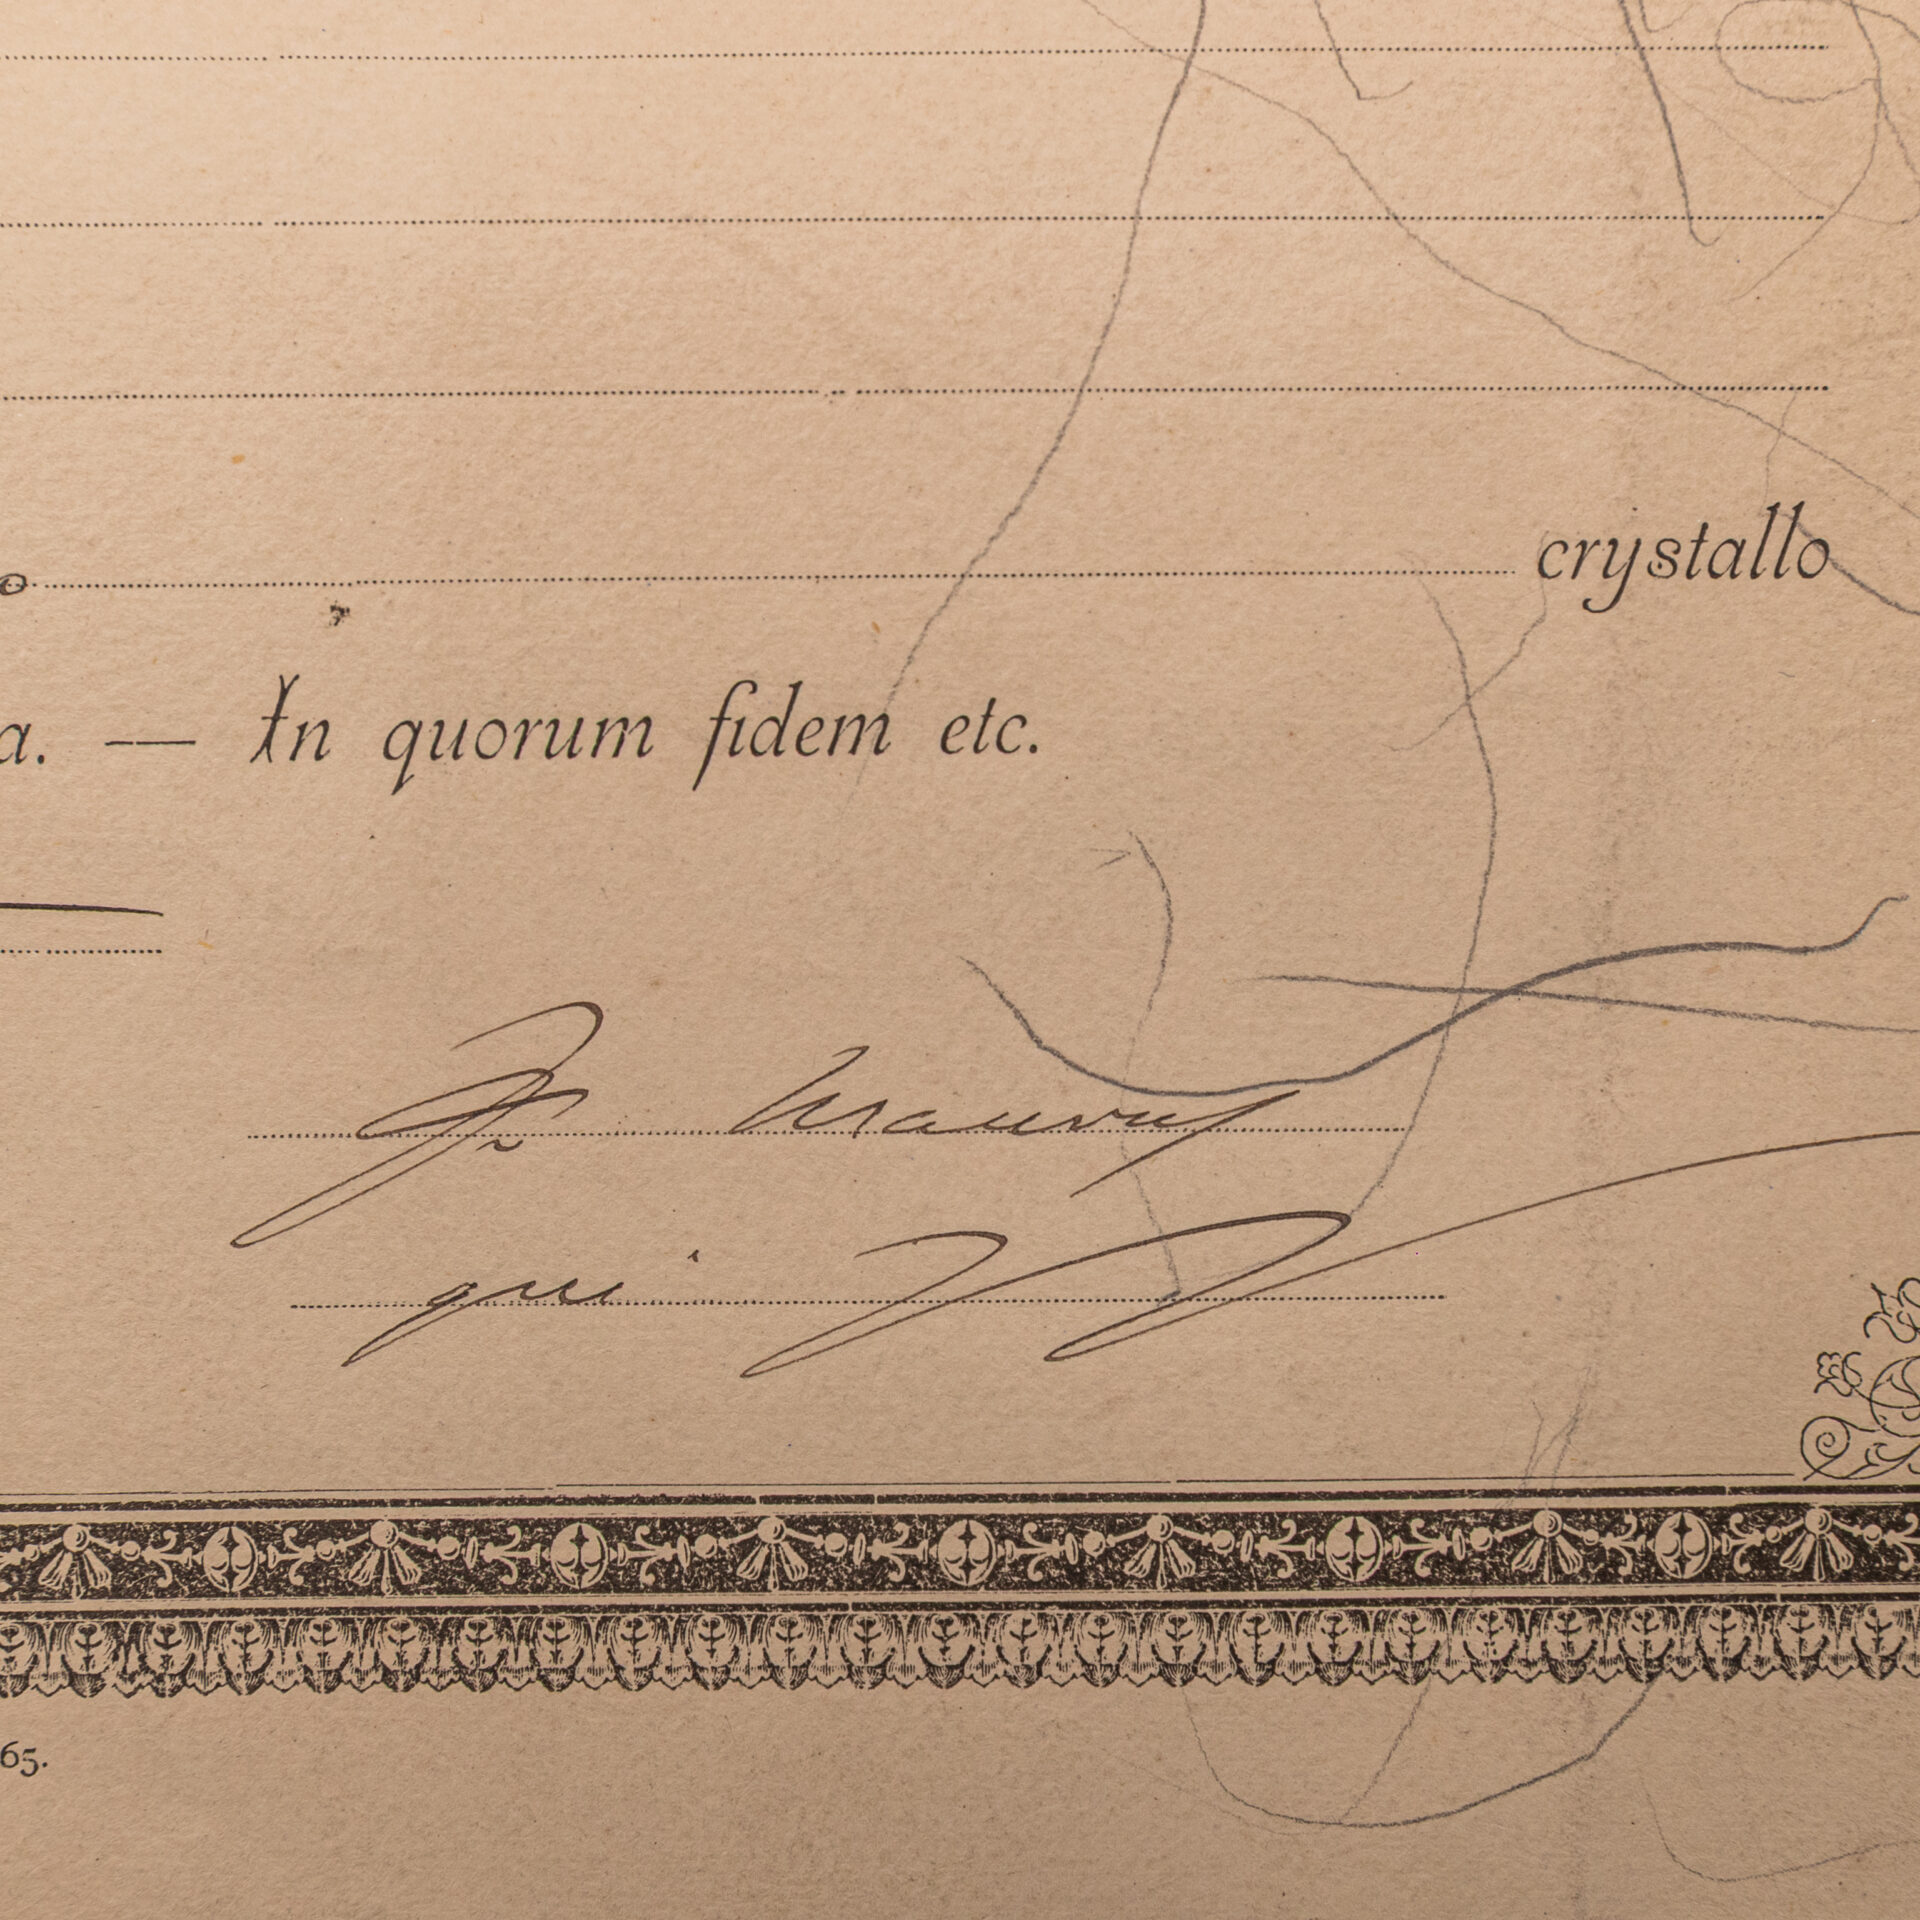 crystallo
a. — In quorum fidem etc.
qui
65.